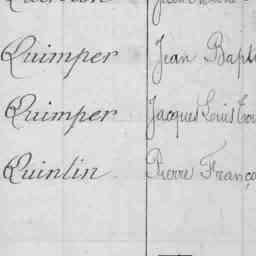 Quimper Jean Bapti
Quimper Jacques Louis
Quinlin Pierre Franço